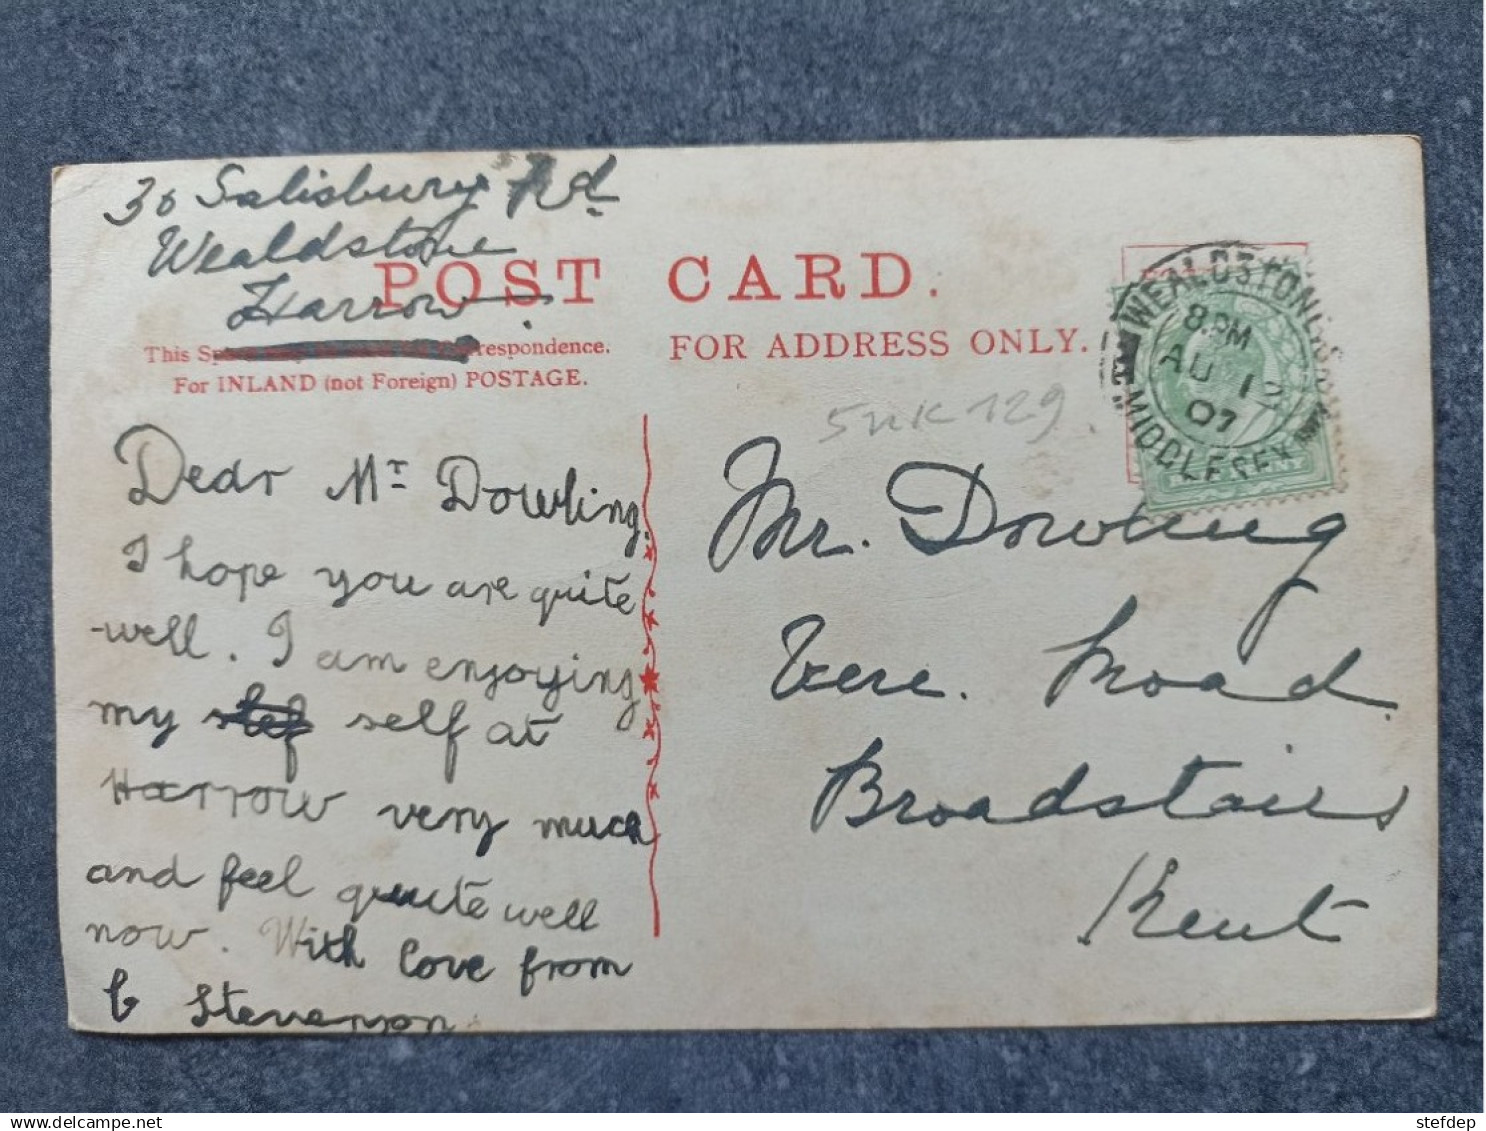 30 Salisbury Rd
Wealdstone
Harrow.
POST CARD.
This Space may be used for Correspondence.
For INLAND (not Foreign) POSTAGE.
FOR ADDRESS ONLY.
Dear Mr Dowling.
I hope you are quite
well. I am enjoying
my self at
Harrow very much
and feel quite well
now. With love from
C Stevenson
5UK129.
WEALDSTONE
8.PM
AU 12
07
MIDDLESEX
Mr. Dowling
Vere. Road.
Broadstairs
Kent
delcampe.net
stefdep